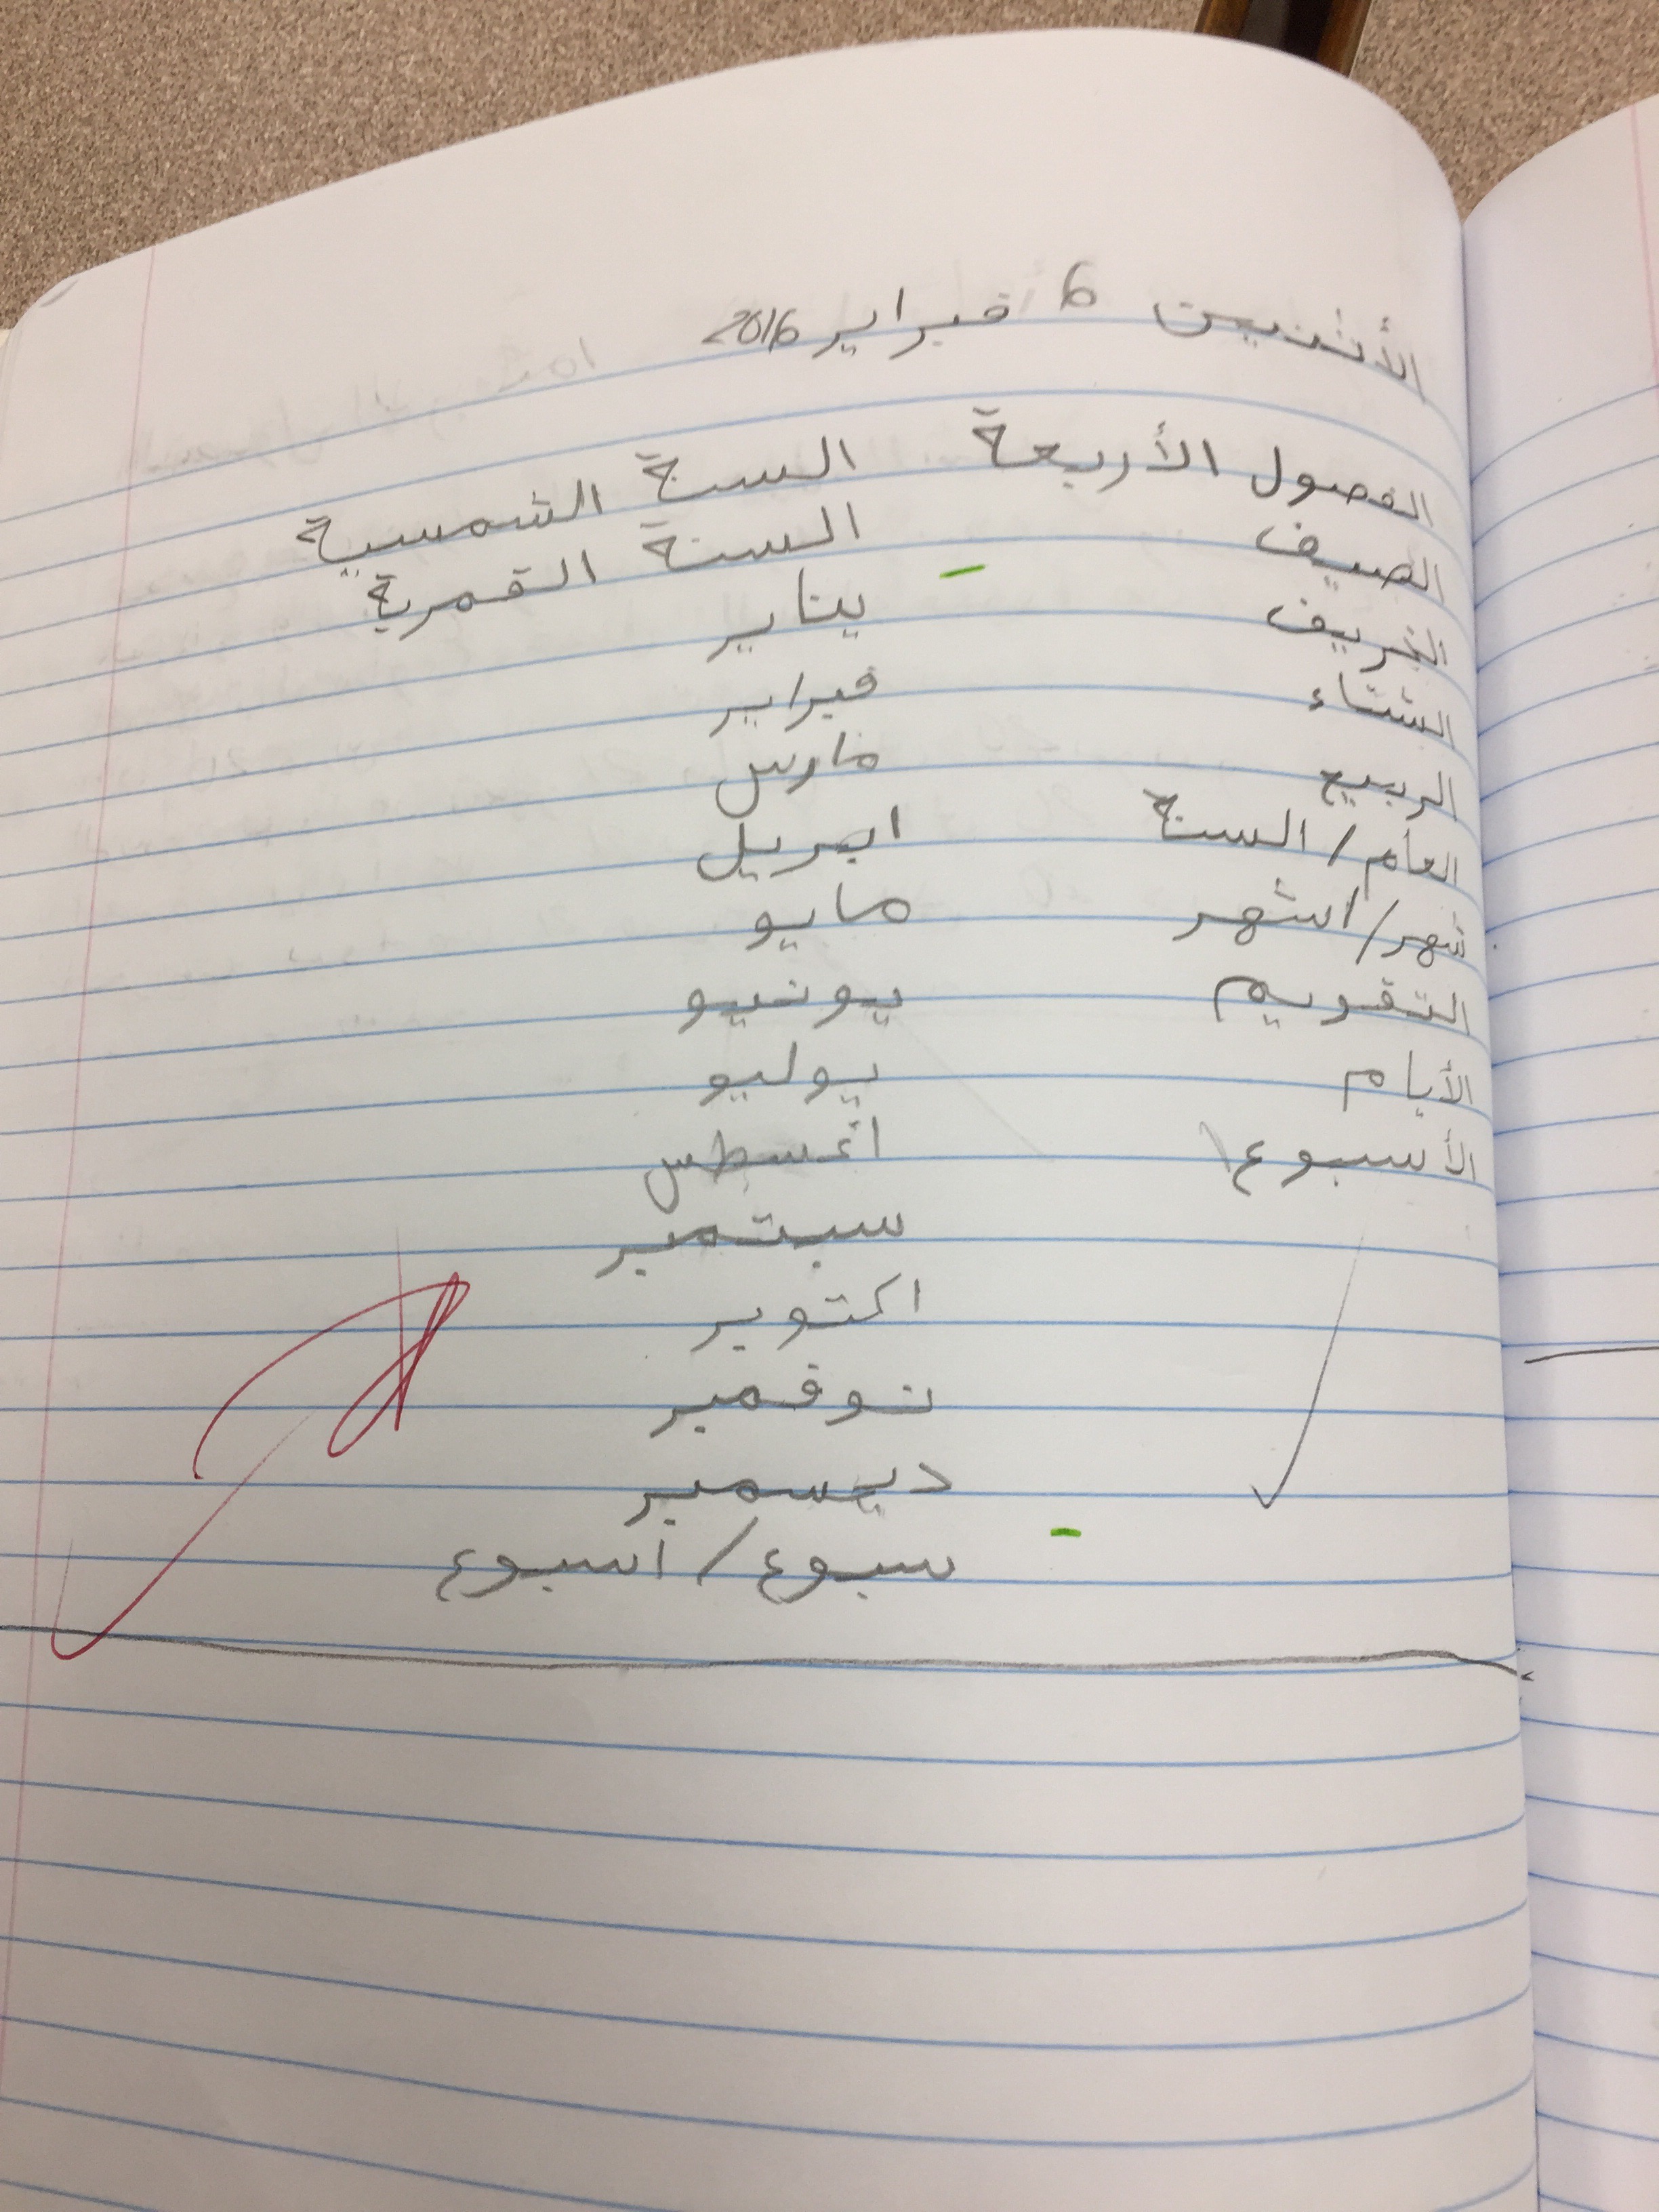 الأثنين 6 فبراير 2016
الفصول الأربعة
الصيف
الخريف
الشتاء
الربيع
العام / السنة
شهر / اشهر
التقويم
الأيام
الأسبوع
السنة الشمسية
السنة القمرية
يناير
فبراير
مارس
ابريل
مايو
يونيو
يوليو
اغسطس
سبتمبر
اكتوبر
نوفمبر
ديسمبر
سبوع / اسبوع